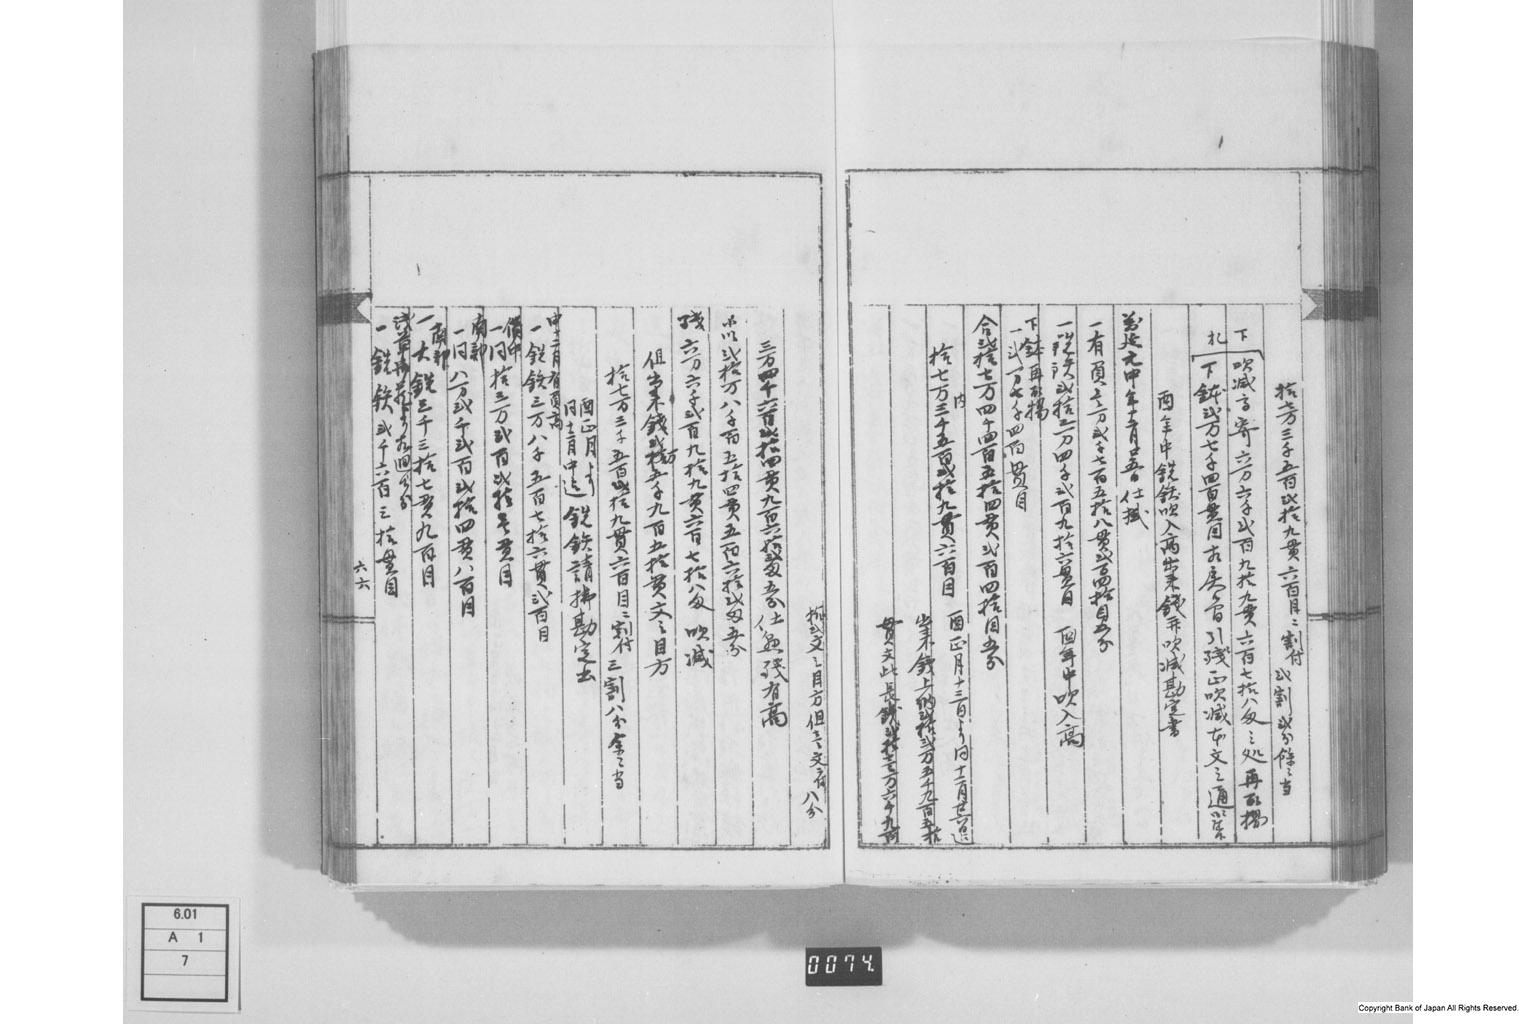 拾七万三千五百弐拾九貫六百目ニ割付弐割弐分余之当
下ケ札
吹減高寄六万六千弐百九拾九貫六百七拾八匁之処再取揚
下鉄弐万七千四百貫目 引残正吹減本文之通
酉年中銑鉄吹入高出来銭并吹減勘定書
万延元申年十二月廿五日仕揚
一有高 七百五拾八貫弐百四拾目五分
一銑鉄弐拾三万四千弐百九拾六貫目 酉年中吹入高
下鉄再取揚
一弐万七千四百貫目
合弐拾七万四千四百五拾四貫弐百四拾目五分
内
拾七万三千五百弐拾九貫六百目
酉正月十三日より同十二月廿六日迄
出来銭上納弐拾弐万五千九百五拾
貫文此長銭弐拾三万六千九百
拾弐文之目方但壱文ニ付八分
三万四千六百弐拾四貫九百六拾弐匁五分仕懸残有高
小以弐拾万八千百五拾四貫五百六拾弐匁五分
残六万六千弐百九拾九貫六百七拾八匁 吹減
但出来銭弐拾弐万五千九百五拾貫文之目方
拾七万三千五百弐拾九貫六百目ニ割付三割八分余之当
酉正月より
同十二月中迄 銑鉄請払勘定書
申十二月有高
一銑鉄三万八千五百七拾六貫弐百目
備中
一同拾三万弐百弐拾壱貫目
南部
一同八万弐千弐百弐拾四貫八百目
南部
一大銑三千三拾七貫九百目
浅草 より相廻り分
一銑鉄弐千六百三拾貫目
六六
6.01
A 1
7
0074
Copyright Bank of Japan All Rights Reserved.